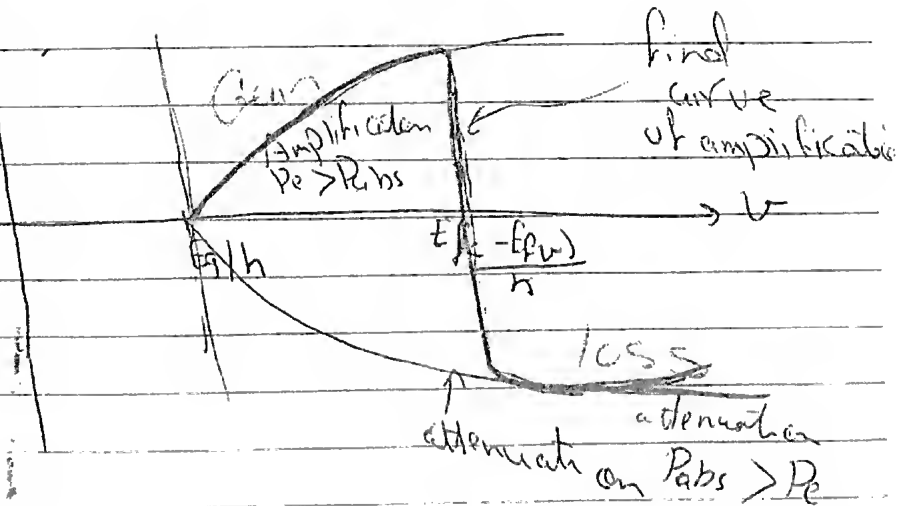 Gain
Amplification
Pe > Pabs
final
curve
of amplification
ν
Eg/h
Efc - Efv)
h
loss
attenuation
attenuation Pabs > Pe